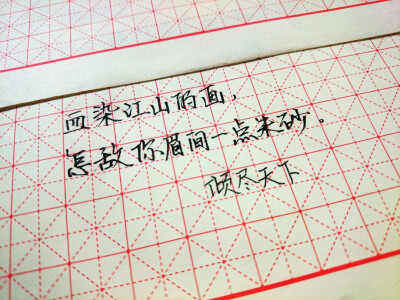 血染江山的画，
怎敌你眉间一点朱砂。
倾尽天下